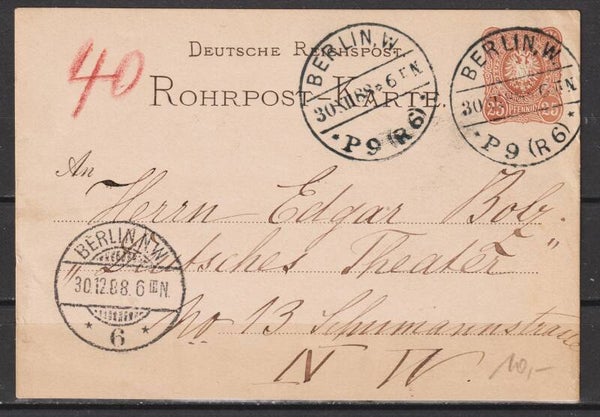 40
DEUTSCHE REICHSPOST.
ROHRPOST-KARTE.
BERLIN, W.
30.XII.88. 6
* P9 (R6) *
BERLIN, W.
30.
6
* P9 (R6) *
25 PFENNIG 25
An
Herrn Edgar Bolz.
"Deutsches Theater"
No 13 Schumannstraße
N W.
BERLIN, N.W.
30.12.88. 6 N.
* 6 *
10,-